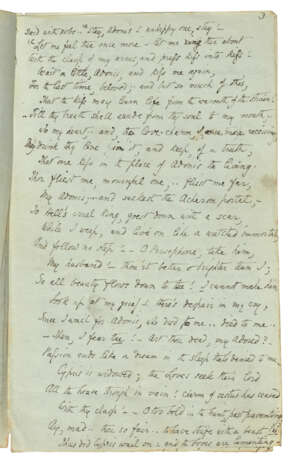 3
Said with sobs.. "Stay, Adonis! unhappy one, stay –
Let me feel thee once more – let me ring thee about
With the clasp of my arms, and press kiss into kiss!
Wait a little, Adonis, and kiss me again,
For the last time, beloved; – and but so much of this,
That the kiss may learn life from the warmth of the strain!
– Till thy breath shall exude from thy soul to my mouth;
To my heart – and, the love-charm I once more receiving,
May drink thy love in it, and keep, of a truth,
That one kiss in the place of Adonis the living.
Thou fliest me, mournful one, .. fliest me far,
My Adonis; – and seekest the Acheron portal, –
To Hell's cruel king, goest down with a scar,
While I weep, and live on like a wretched immortal
And follow no step! – O Persephone, take him,
My husband! – thou'rt better & brighter than I;
So all beauty flows down to thee! I cannot make him
Look up at my grief – there's despair in my cry,
Since I wail for Adonis, who died to me .. died to me –
– Then, I fear thee! – Art thou dead, my adored?
Passion ends like a dream in the sleep that's denied to me
Cypris is widowed; the Loves seek their lord
All the house through in vain! Charm of cestus has ceased
With thy clasp! – O too bold in the hunt, past preventing
Ay, mad – thou so fair .. to have strife with a beast!
Thus did Cypris wail on; and the Loves are lamenting